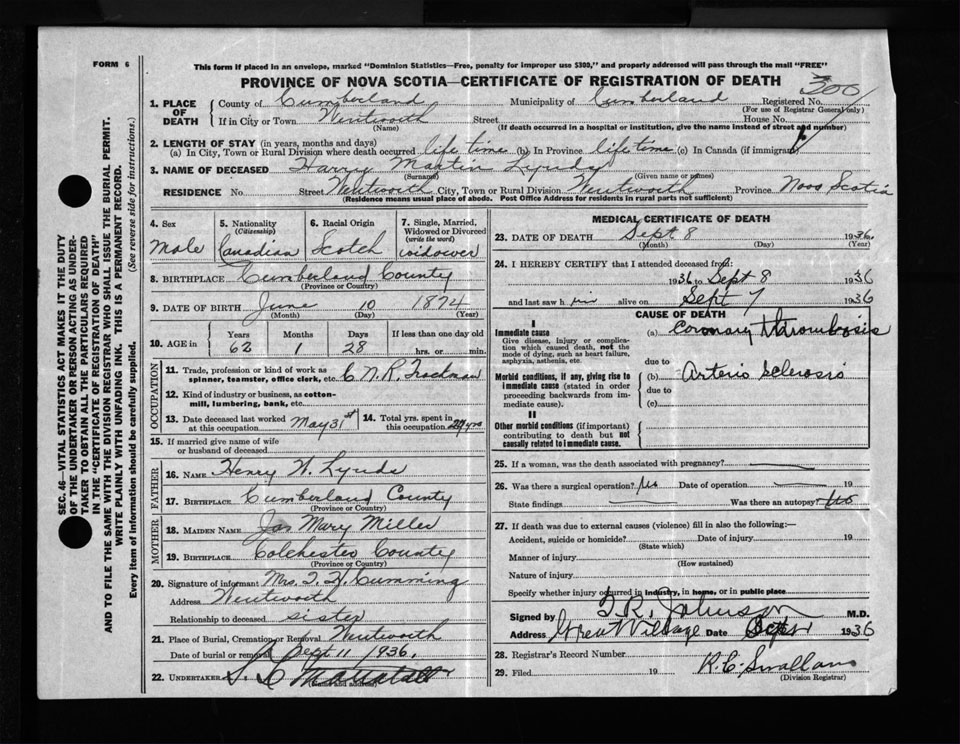 FORM 6
This form if placed in an envelope, marked "Dominion Statistics—Free, penalty for improper use $300," and properly addressed will pass through the mail "FREE"
PROVINCE OF NOVA SCOTIA—CERTIFICATE OF REGISTRATION OF DEATH
300
1. PLACE OF DEATH
County of Cumberland Municipality of Cumberland Registered No.
(For use of Registrar General only)
If in City or Town Wentworth Street House No.
(Name) (If death occurred in a hospital or institution, give the name instead of street and number)
2. LENGTH OF STAY (in years, months and days)
(a) In City, Town or Rural Division where death occurred life time (b) In Province life time (c) In Canada (if immigrant)
3. NAME OF DECEASED Harry Martin Lynds
(Surname) (Given name or names)
RESIDENCE No. Street Wentworth City, Town or Rural Division Wentworth Province Nova Scotia
(Residence means usual place of abode. Post Office Address for residents in rural parts not sufficient)
SEC. 46—VITAL STATISTICS ACT MAKES IT THE DUTY
OF THE UNDERTAKER OR PERSON ACTING AS UNDER-
TAKER TO OBTAIN ALL THE PARTICULARS REQUIRED
IN THE "CERTIFICATE OF REGISTRATION OF DEATH"
AND TO FILE THE SAME WITH THE DIVISION REGISTRAR WHO SHALL ISSUE THE BURIAL PERMIT.
WRITE PLAINLY WITH UNFADING INK. THIS IS A PERMANENT RECORD.
Every item of information should be carefully supplied. (See reverse side for instructions.)
4. Sex
Male
5. Nationality
(Citizenship)
Canadian
6. Racial Origin
Scotch
7. Single, Married, Widowed or Divorced
(write the word)
widower
8. BIRTHPLACE Cumberland County
(Province or Country)
9. DATE OF BIRTH June 10 1874
(Month) (Day) (Year)
10. AGE in
Years Months Days If less than one day old
62 1 28 hrs. or min.
OCCUPATION
11. Trade, profession or kind of work as
spinner, teamster, office clerk, etc. C.N.R. Trackman
12. Kind of industry or business, as cotton-
mill, lumbering, bank, etc.
13. Date deceased last worked at this occupation May 31st
14. Total yrs. spent in this occupation 29 yrs
15. If married give name of wife
or husband of deceased
FATHER
16. NAME Henry W. Lynds
17. BIRTHPLACE Cumberland County
(Province or Country)
MOTHER
18. MAIDEN NAME Mary Miller
19. BIRTHPLACE Colchester County
(Province or Country)
20. Signature of informant Mrs. T. H. Cumming
Address Wentworth
Relationship to deceased sister
21. Place of Burial, Cremation or Removal Wentworth
Date of burial or removal Sept 11 1936.
22. UNDERTAKER
(Name and address)
MEDICAL CERTIFICATE OF DEATH
23. DATE OF DEATH Sept 8 1936
(Month) (Day) (Year)
24. I HEREBY CERTIFY that I attended deceased from:
1936 to Sept 8 1936
and last saw him alive on Sept 7 1936
CAUSE OF DEATH
I
Immediate cause (a) Coronary Thrombosis
Give disease, injury or complica-
tion which caused death, not the
mode of dying, such as heart failure,
asphyxia, asthenia, etc.
due to
Morbid conditions, if any, giving rise to (b) Arterio Sclerosis
immediate cause (stated in order due to
proceeding backwards from im-
mediate cause). (c)
II
Other morbid conditions (if important)
contributing to death but not
causally related to immediate cause.
25. If a woman, was the death associated with pregnancy?
26. Was there a surgical operation? No Date of operation 19
State findings Was there an autopsy? No
27. If death was due to external causes (violence) fill in also the following:—
Accident, suicide or homicide? Date of injury 19
(State which)
Manner of injury
(How sustained)
Nature of injury
Specify whether injury occurred in industry, in home, or in public place
Signed by T. R. Johnson M.D.
Address Great Village Date Sept 1936
28. Registrar's Record Number
29. Filed 19
(Division Registrar)